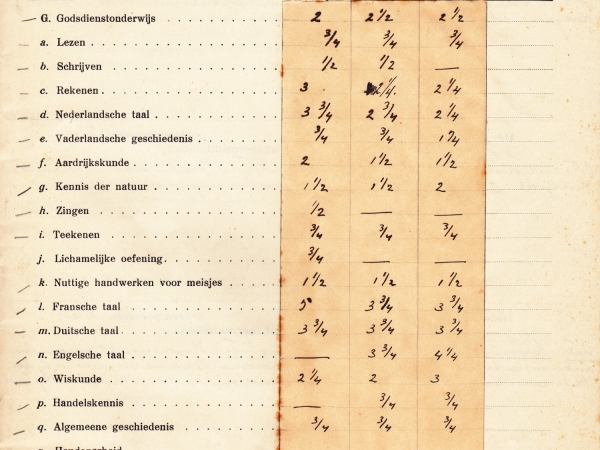 G. Godsdienstonderwijs 2 2 1/2 2 1/2
a. Lezen 3/4 3/4 3/4
b. Schrijven 1/2 1/2 —
c. Rekenen 3 2 1/4 2 1/4
d. Nederlandsche taal 3 3/4 2 3/4 2 1/4
e. Vaderlandsche geschiedenis 3/4 3/4
f. Aardrijkskunde 2 1 1/2 1 1/2
g. Kennis der natuur 1 1/2 1 1/2 2
h. Zingen 1/2 — —
i. Teekenen 3/4 3/4 3/4
j. Lichamelijke oefening 3/4 — —
k. Nuttige handwerken voor meisjes 1 1/2 1 1/2 1 1/2
l. Fransche taal 5 3 3/4 3 3/4
m. Duitsche taal 3 3/4 3 3/4 3 3/4
n. Engelsche taal — 3 3/4 4 1/4
o. Wiskunde 2 1/4 2 3
p. Handelskennis — 3/4 3/4
q. Algemeene geschiedenis 3/4 3/4 3/4